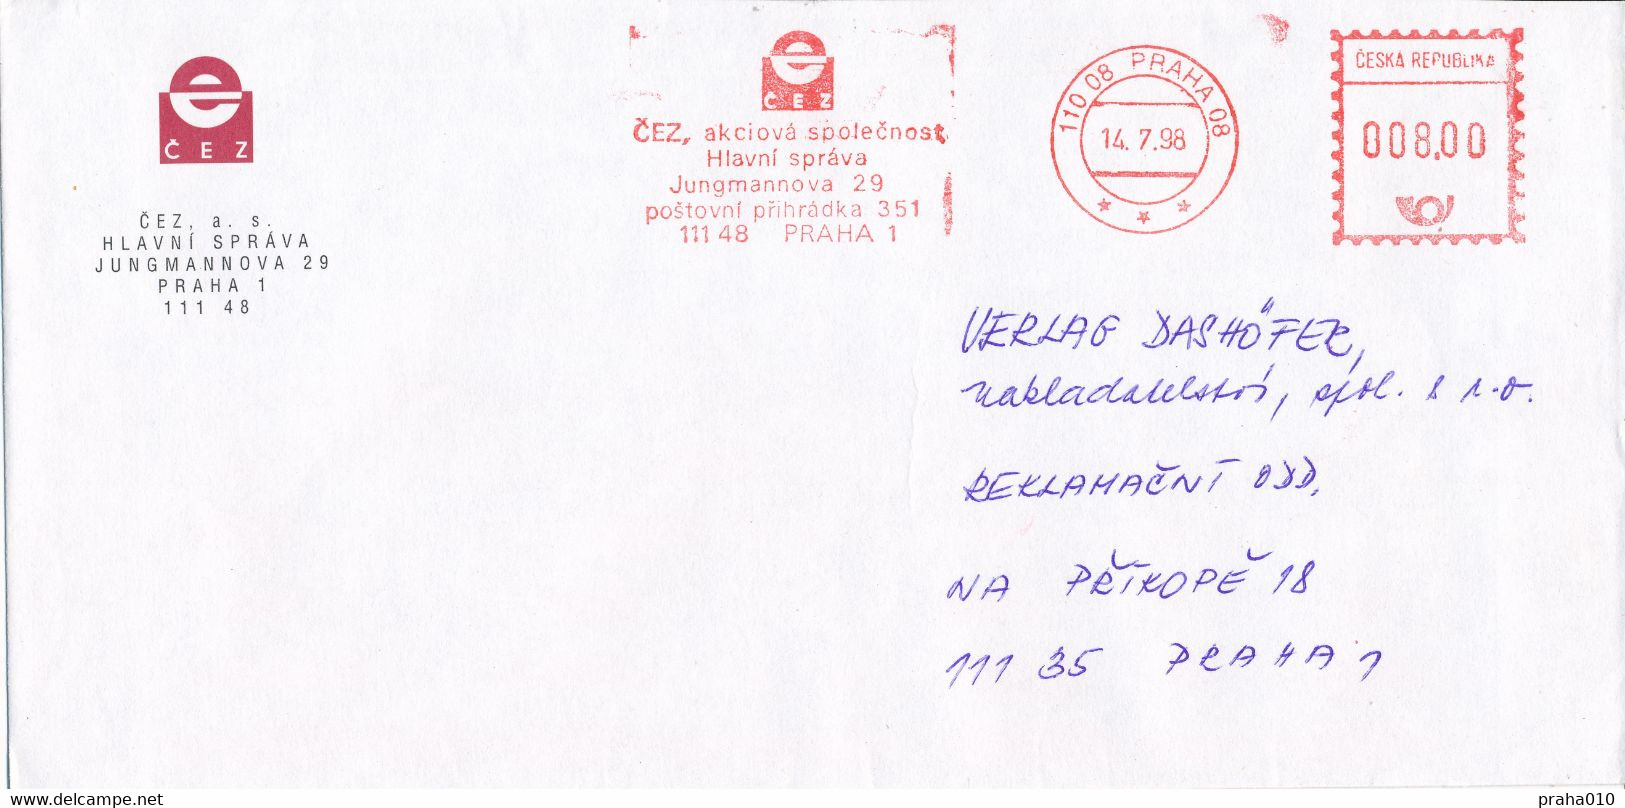 ČEZ
ČEZ, a. s.
HLAVNÍ SPRÁVA
JUNGMANNOVA 29
PRAHA 1
111 48
ČEZ
ČEZ, akciová společnost
Hlavní správa
Jungmannova 29
poštovní přihrádka 351
111 48 PRAHA 1
110 08 PRAHA 08
14. 7.98
ČESKÁ REPUBLIKA
008,00
VERLAG DASHÖFER,
nakladatelství, spol. s r.o.
REKLAMAČNÍ ODD.
NA PŘÍKOPĚ 18
111 35 PRAHA 1
www.delcampe.net
praha010